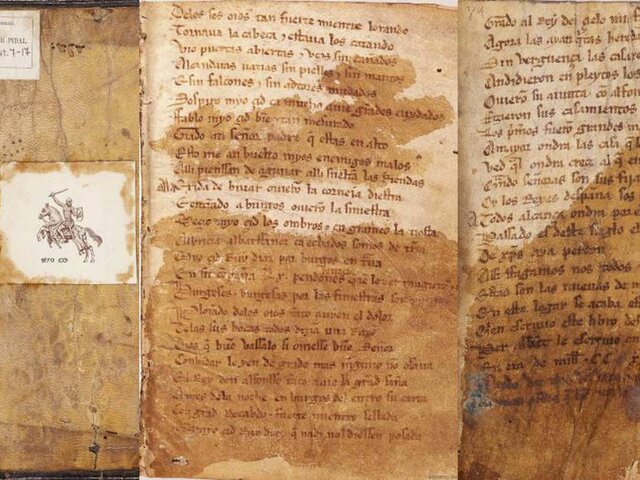 PIDAL
7-17
MYO CID
Delos sos oios tan fuerte mientre lorando
Tornaua la cabeça & estaua los catando
Vio puertas abiertas & vços sin cañados
Alcandaras uazias sin pielles & sin mantos
E sin falcones & sin adtores mudados
Sospiro myo çid ca mucho auie grandes cuydados
Fablo myo çid bien & tan mesurado
Grado ati señor padre que estas en alto
Esto me an buelto myos enemigos malos
Alli pienssan de aguiiar alli sueltan las Riendas
Ala exida de biuar ouieron la corneia diestra
Entrando a burgos ouieron la siniestra
Meçio myo çid los ombros & engrameo la tiesta
Albricia albarffanez ca echados somos de tierra
Myo çid Ruy diaz por burgos en
En su conpaña Lx pendones
Burgeses & burgesas por las finiestras son
Plorando delos oios tanto auyen el dolor
Delas sus bocas todos dizian una Razon
Dios que buen vassalo si ouiesse buen Señor
Conbidar le yen de grado mas ninguno no osaua
El Rey don alfonsso tanto auie la grand saña
Antes dela noche en burgos del entro su carta
Con grand Recabdo & fuerte mientre sellada
Que a myo çid Ruy diaz que nadi nol diessen posada
74
Grado al Rey del çielo
Agora las ayan quitas hered
Sin verguença las casare
Andidieron en pleytos los
Ouieron su aiunta con alfons
Fizieron sus casamientos
Los primeros fueron grandes
A mayor ondra las casa que
Ved qual ondra creçe al que en
Quando señoras son sus fijas
Oy los Reyes despaña sos
A todos alcança ondra por
Passado es deste sieglo el
De christus aya perdon
Assi ffagamos nos todos
Estas son las nueuas de
En este logar se acaba
Quien escriuio este libro del
Per abbat le escriuio en
En era de mill & CC